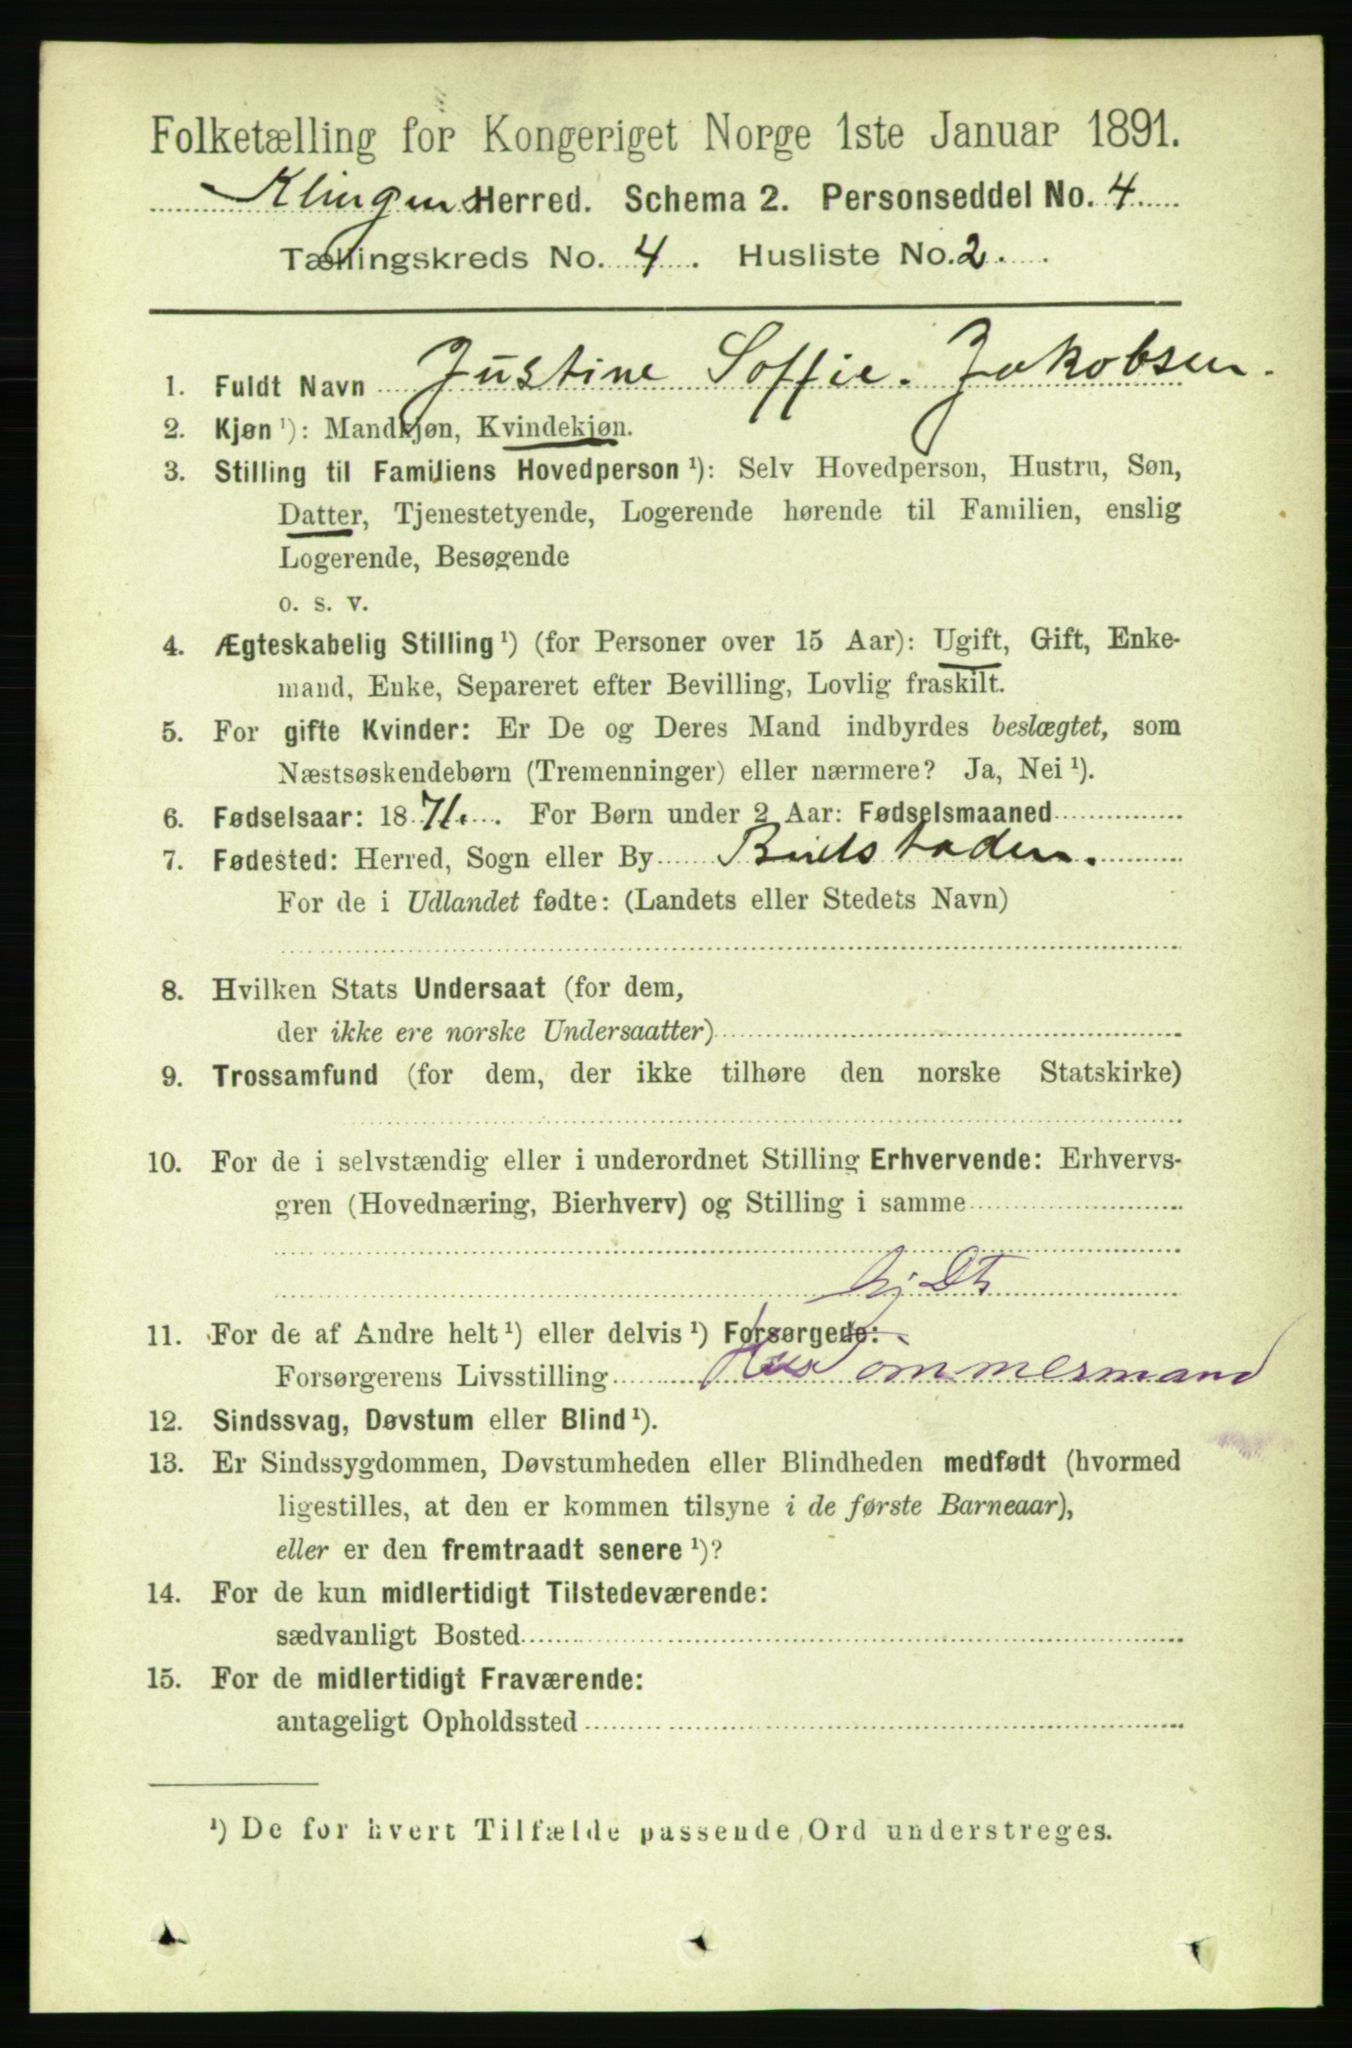 Folketælling for Kongeriget Norge 1ste Januar 1891.
Klingen Herred. Schema 2. Personseddel No. 4
Tællingskreds No. 4. Husliste No. 2.
1. Fuldt Navn Justine Soffie. Jakobsen.
2. Kjøn ¹): Mandkjøn, Kvindekjøn.
3. Stilling til Familiens Hovedperson ¹): Selv Hovedperson, Hustru, Søn,
Datter, Tjenestetyende, Logerende hørende til Familien, enslig
Logerende, Besøgende
o. s. v.
4. Ægteskabelig Stilling ¹) (for Personer over 15 Aar): Ugift, Gift, Enke-
mand, Enke, Separeret efter Bevilling, Lovlig fraskilt.
5. For gifte Kvinder: Er De og Deres Mand indbyrdes beslægtet, som
Næstsøskendebørn (Tremenninger) eller nærmere? Ja, Nei ¹).
6. Fødselsaar: 1871. For Børn under 2 Aar: Fødselsmaaned
7. Fødested: Herred, Sogn eller By
For de i Udlandet fødte: (Landets eller Stedets Navn)
8. Hvilken Stats Undersaat (for dem,
der ikke ere norske Undersaatter)
9. Trossamfund (for dem, der ikke tilhøre den norske Statskirke)
10. For de i selvstændig eller i underordnet Stilling Erhvervende: Erhvervs-
gren (Hovednæring, Bierhverv) og Stilling i samme
11. For de af Andre helt ¹) eller delvis ¹) Forsørgede:
Forsørgerens Livsstilling Hustømmermand
12. Sindssvag, Døvstum eller Blind ¹).
13. Er Sindssygdommen, Døvstumheden eller Blindheden medfødt (hvormed
ligestilles, at den er kommen tilsyne i de første Barneaar),
eller er den fremtraadt senere ¹)?
14. For de kun midlertidigt Tilstedeværende:
sædvanligt Bosted
15. For de midlertidigt Fraværende:
antageligt Opholdssted
¹) De for hvert Tilfælde passende Ord understreges.